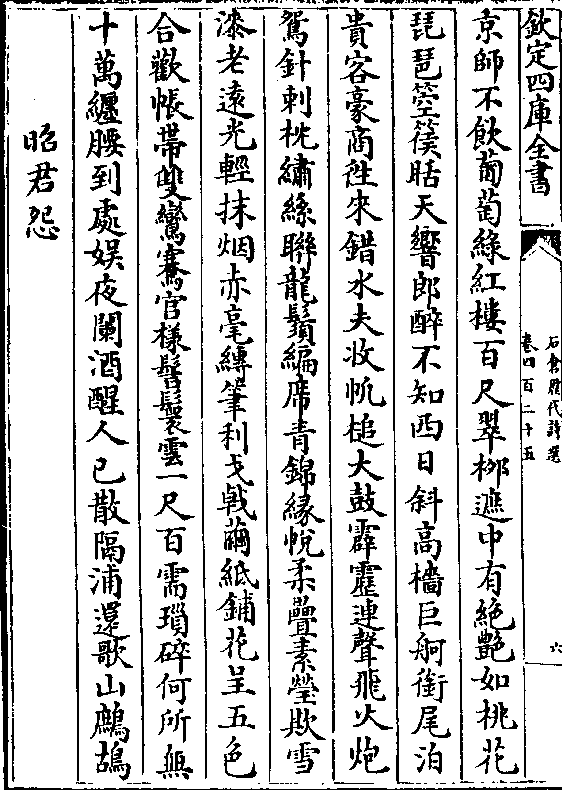 欽定四庫全書
石倉歷代詩選
卷四百二十五
六
京師不飲葡萄綠紅樓百尺翠柳遮中有絶艷如桃花
琵琶箜篌聒天響郎醉不知西日斜高檣巨舸銜尾泊
貴客豪商往來錯水夫收帆槌大鼓霹靂連聲飛火炮
鴛針刺枕繡絲聯龍鬚編席青錦緣帨柔疊素瑩欺雪
漆老遠光輕抹烟赤毫縛筆利戈戟繭紙鋪花呈五色
合歡帳帶雙鸞騫官樣髻鬟雲一尺百需瑣碎何所無
十萬纏腰到處娱夜闌酒醒人已散隔浦還歌山鷓鴣
昭君怨